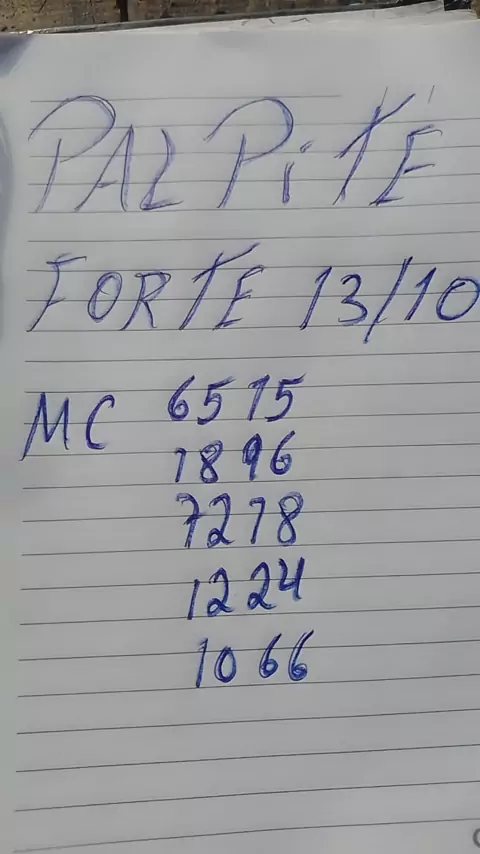 PALPiTE
FORTE 13/10
MC 6515
1896
7218
1224
1066